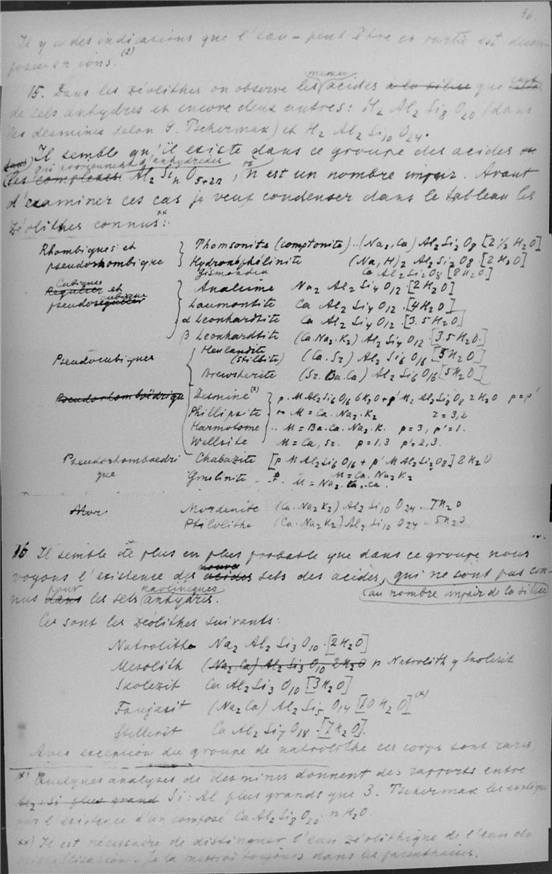 Il y a des indications que l'eau - peut être en partie est
(2)
15. Dans les zéolithes on observe les mêmes acides que
de sels anhydres et encore deux autres: H2 Al2 Si6 O20 (dans
les desmines selon G. Tschermak) et H2 Al2 Si10 O24.
Il semble qu'il existe dans ce groupe des acides
qui proviennent d'anhydrides
Al2 Sin O5+2n, où n est un nombre impair. Avant
d'examiner ces cas je veux condenser dans le tableau les
zéolithes connus**:
Rhombiques et } Thomsonite (comptonite) .. (Na2, Ca) Al2 Si2 O8 [2½ H2O]
pseudorhombique Hydronéphélinite (Na, H)2 Al2 Si2 O8 [2 H2O]
Gismondin Ca Al2 Si2 O8 [8 H2O]
Cubiques et Analcime Na2 Al2 Si4 O12 [2 H2O]
pseudocubiques Laumontite Ca Al2 Si4 O12 [4 H2O]
α Leonhardtite Ca Al2 Si4 O12 [3.5 H2O]
β Leonhardtite (Ca.Na2.K2) Al2 Si4 O12 [3.5 H2O]
Pseudocubiques { Heulandite (Ca.Sr) Al2 Si6 O16 [5 H2O]
(Stilbite)
Brewsterite (Sr.Ba.Ca) Al2 Si6 O16 [5 H2O]
Desmine(*) p M Al2 Si6 O16 6H2O + p' M2 Al2 Si2 O8 2 H2O p=p'
Phillipsite " M = Ca.Na2.K2
Harmotome " M = Ba.Ca.Na2.K. p=3, p'=1.
Wellsite M = Ca, Sr. p=1,3 p'=2,3.
Pseudorhomboedrique Chabazite [p M Al2 Si6 O16 + p' M Al2 Si2 O8] 2 H2O
M = Ca.Na2.K2
Gmelinite M = Na2.Ca.
Mordenite (Ca.Na2.K2) Al2 Si10 O24 . 7 H2O
Ptilolithe (Ca.Na2.K2) Al2 Si10 O24 . 5 H2O
16 Il semble de plus en plus probable que dans ce groupe nous
voyons l'existence des nouveaux sels des acides, qui ne sont pas con-
nus pour les sels kaoliniques anhydres. (au nombre impair de la silice
Ces sont les zéolithes suivants:
Natrolithe Na2 Al2 Si3 O10 . [2 H2O]
Mesolith (Na2 Ca) Al2 Si3 O10 2 H2O n Natrolith y Skolezit
Skolezit Ca Al2 Si3 O10 [3 H2O]
Faujasit (Na2 Ca) Al2 Si5 O14 [10 H2O](*)
Stellerit Ca Al2 Si7 O18 . [7 H2O].
Avec exception du groupe de natrolithe ces corps sont rares
*) Quelques analyses de desmines donnent des rapports entre
Si : Al plus grands que 3. Tschermak les explique
par l'existence d'un composé Ca Al2 Si6 O20 . n H2O
**) Il est nécessaire de distinguer l'eau zéolithique de l'eau de
cristallisation. Je la mettrai toujours dans les parenthèses.